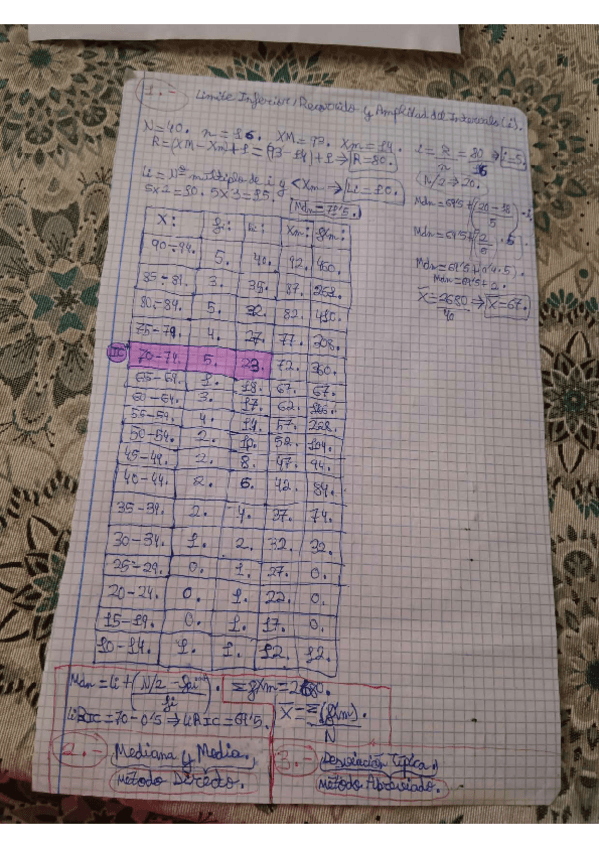 1.- Límite Inferior, Recorrido y Amplitud del Intervalo (i).
N=40. n=16. XM=93. Xm=14. i=R/n=80/16 ⇒ i=5.
R=(XM-Xm)+1=(93-14)+1⇒ R=80.
N/2⇒20.
Li=Nº múltiplo de i y <Xm⇒ Li=10.
5x2=10. 5x3=15.
Mdn=71'5.
Mdn=69'5+(20-18/5).i
Mdn=69'5+(2/5.5).
Mdn=69'5+(0'4.5).
Mdn=69'5+2.
X=2680/40⇒X=67.
X: fi: Xm: fXm:
90-94. 5. 40. 92. 460.
85-89. 3. 35. 87. 261.
80-84. 5. 32. 82. 410.
75-79. 4. 27. 77. 308.
IC 70-74. 5. 23. 72. 360.
65-69. 1. 18. 67. 67.
60-64. 3. 17. 62. 186.
55-59. 4. 14. 57. 228.
50-54. 2. 10. 52. 104.
45-49. 2. 8. 47. 94.
40-44. 2. 6. 42. 84.
35-39. 2. 4. 37. 74.
30-34. 1. 2. 32. 32.
25-29. 0. 1. 27. 0.
20-24. 0. 1. 22. 0.
15-19. 0. 1. 17. 0.
10-14. 1. 1. 12. 12.
Σ fXm=2680.
X=Σ(fXm)/N.
LiRIC=70-0'5⇒LiRIC=69'5.
2.- Mediana y Media.
Método Directo.
3.- Desviación Típica.
Método Abreviado.